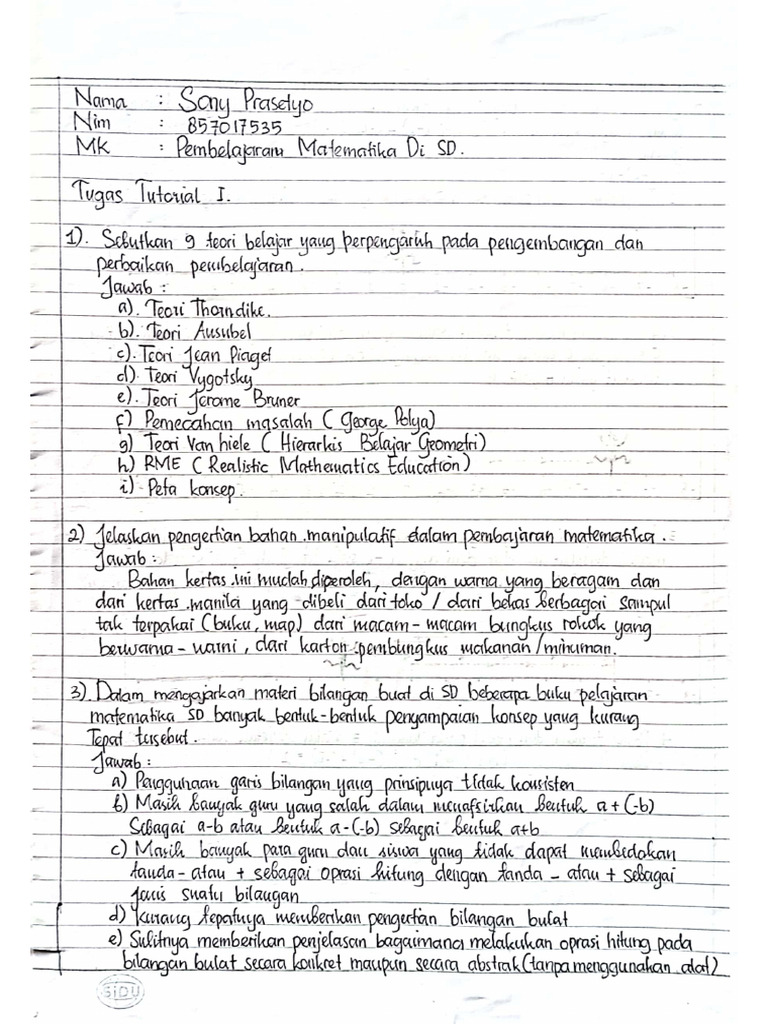 Nama : Sony Prasetyo
Nim : 857017535
MK : Pembelajaran Matematika Di SD.
Tugas Tutorial I.
1). Sebutkan 9 teori belajar yang perpengaruh pada pengembangan dan
perbaikan pembelajaran.
Jawab :
a). Teori Thorndike.
b). Teori Ausubel
c). Teori Jean Piaget
d). Teori Vygotsky
e). Teori Jerome Bruner
f) Pemecahan masalah ( George Polya)
g) Teori Van hiele ( Hierarkis Belajar Geometri)
h) RME ( Realistic Mathematics Education)
i) Peta konsep.
2) Jelaskan pengertian bahan manipulatif dalam pembajaran matematika.
Jawab :
Bahan kertas ini mudah diperoleh, dengan warna yang beragam dan
dari kertas manila yang dibeli dari toko / dari bekas berbagai sampul
tak terpakai (buku, map) dari macam-macam bungkus rokok yang
berwarna-warni, dari karton pembungkus makanan/minuman.
3) Dalam mengajarkan materi bilangan buat di SD beberapa buku pelajaran
matematika SD banyak bentuk-bentuk penyampaian konsep yang kurang
Tepat tersebut.
Jawab :
a) Penggunaan garis bilangan yang prinsipnya tidak konsisten
b) Masih banyak guru yang salah dalam menafsirkan bentuk a + (-b)
Sebagai a-b atau bentuk a-(-b) sebagai bentuk a+b
c) Masih banyak para guru dan siswa yang tidak dapat membedakan
tanda - atau + sebagai oprasi hitung dengan tanda - atau + sebagai
jenis suatu bilangan
d) Kurang tepatnya memberikan pengertian bilangan bulat
e) Sulitnya memberikan penjelasan bagaimana melakukan oprasi hitung pada
bilangan bulat secara konkret maupun secara abstrak (tanpa menggunakan alat)
SIDU